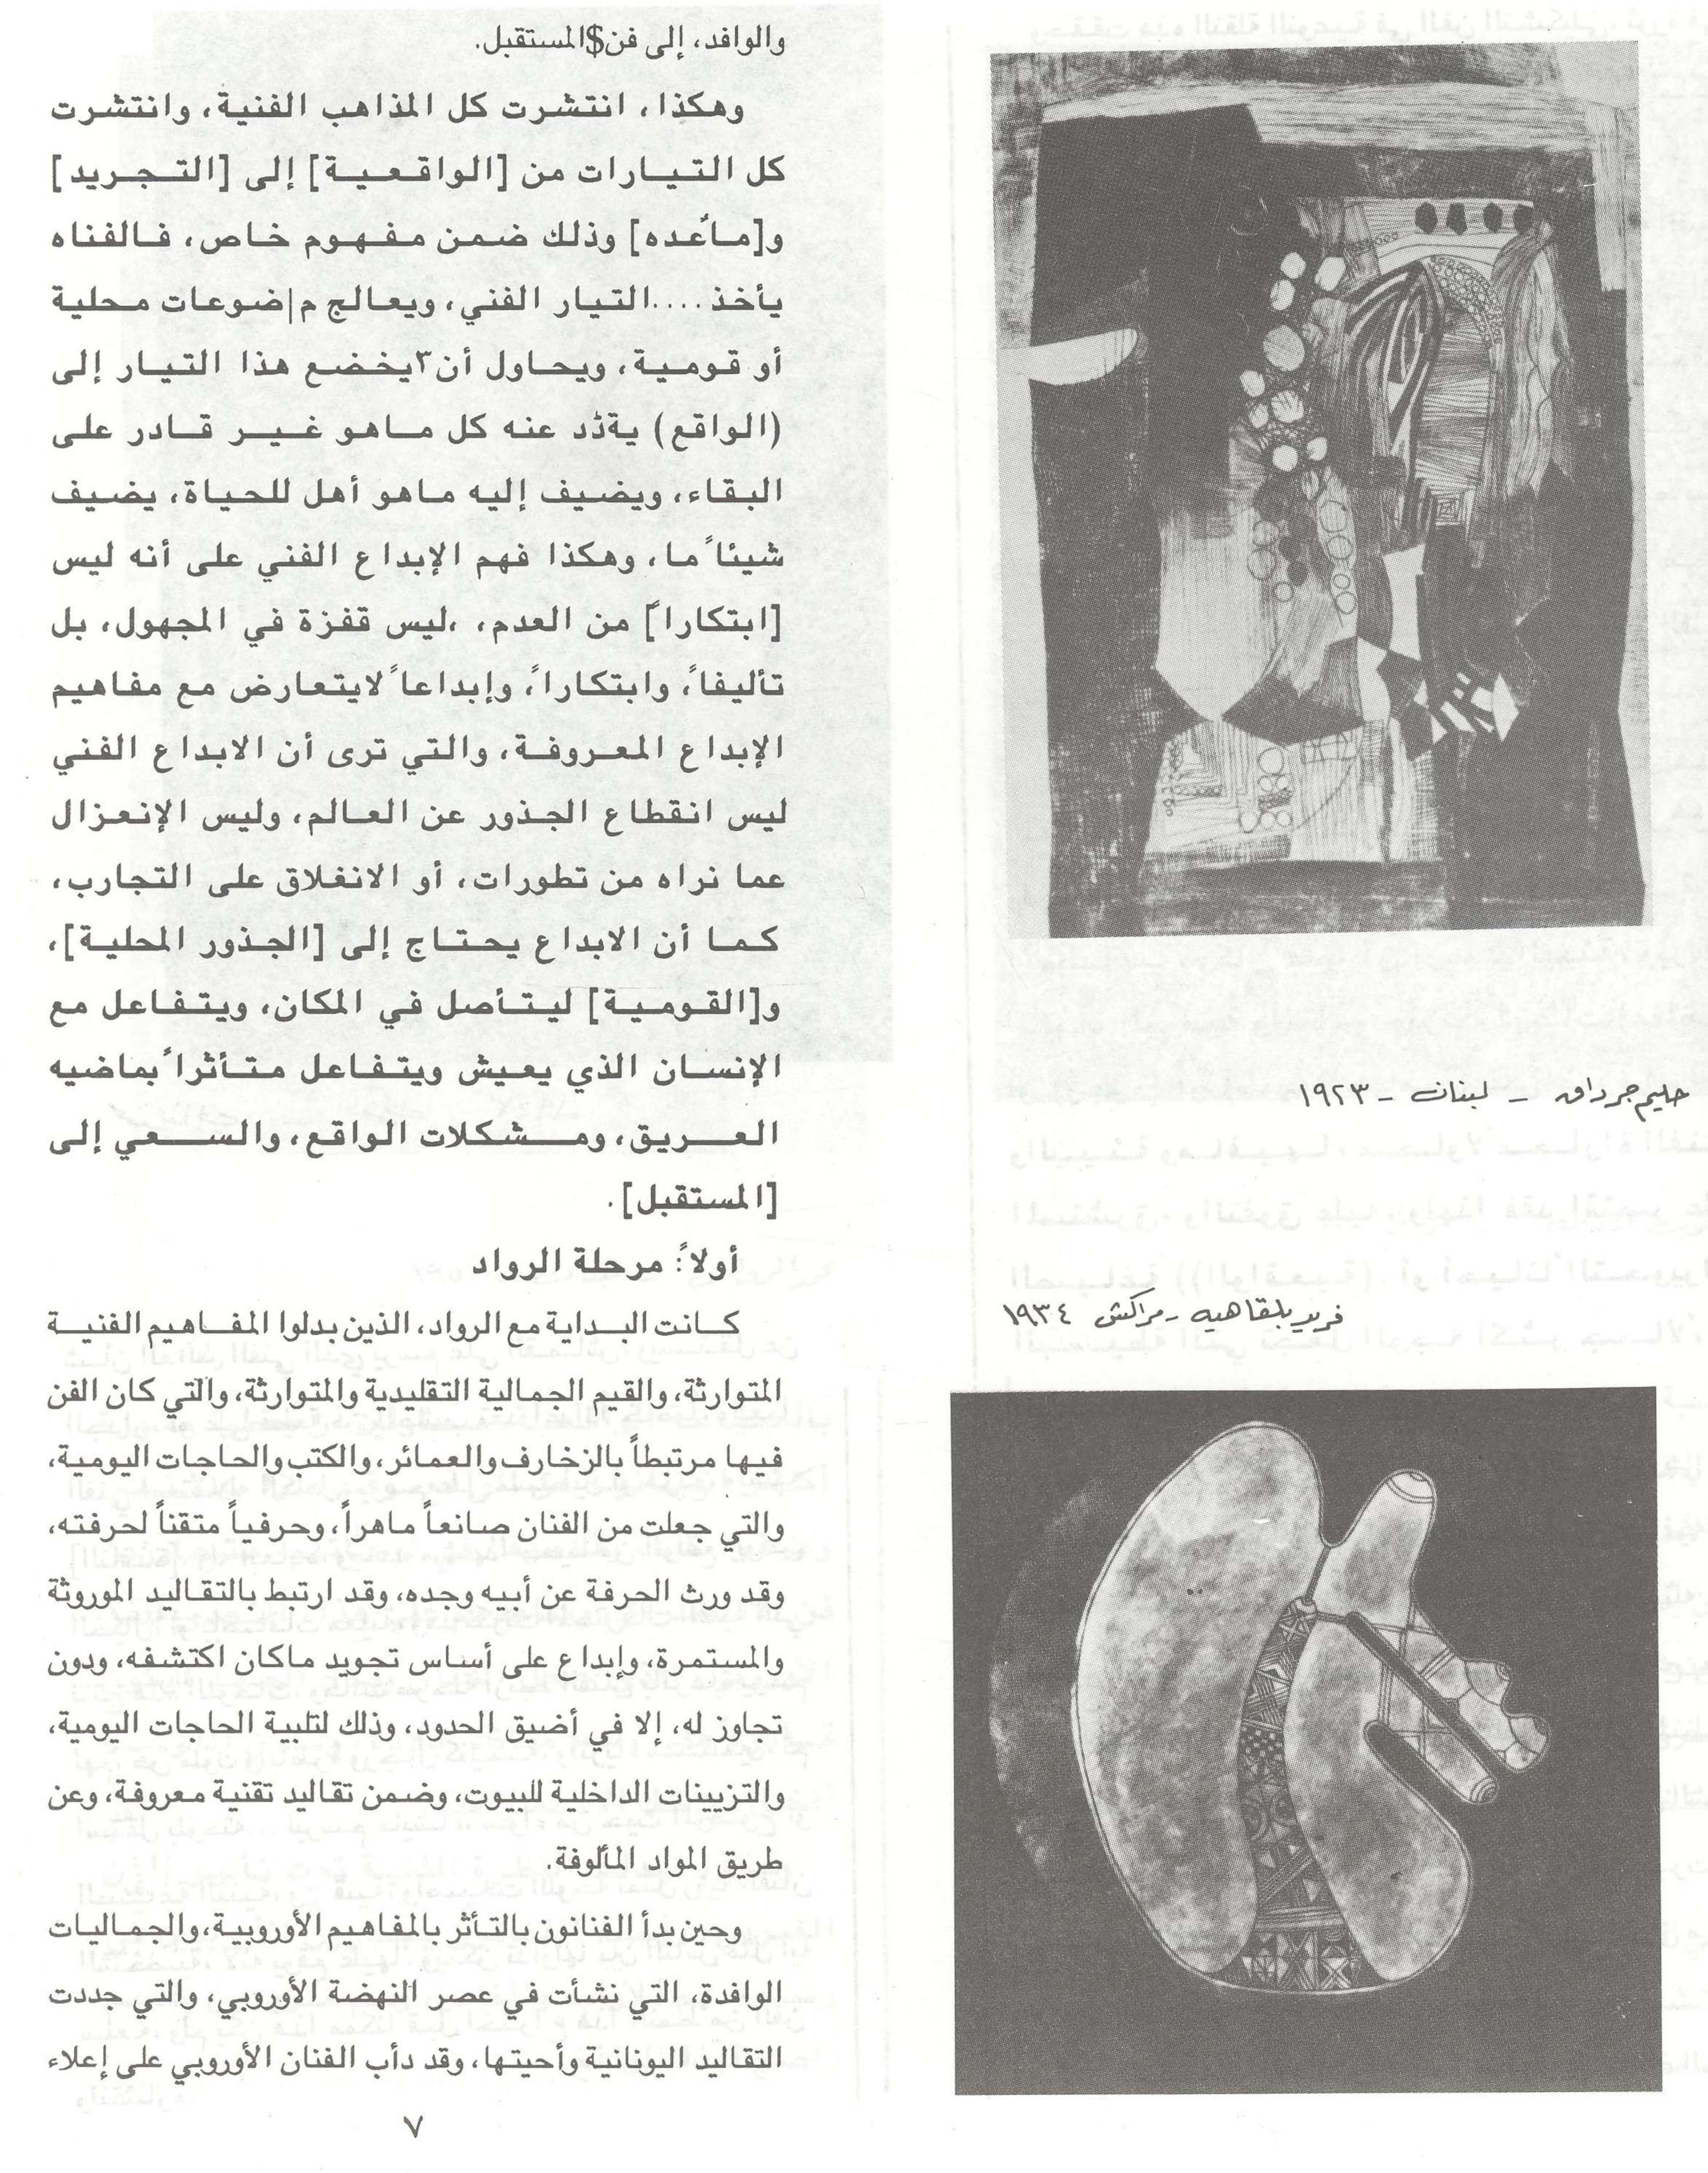 والوافد، إلى فن$المستقبل.
وهكذا، انتشرت كل المذاهب الفنية، وانتشرت
كل التيارات من [الواقعية] إلى [التجريد]
و[مابعده] وذلك ضمن مفهوم خاص، فالفناه
يأخذ....التيار الفني، ويعالج م|ضوعات محلية
أو قومية، ويحاول أن٣يخضع هذا التيار إلى
(الواقع) عنه كل ماهو غير قادر على
البقاء، ويضيف إليه ماهو أهل للحياة، يضيف
شيئاً ما، وهكذا فهم الإبداع الفني على أنه ليس
[ابتكاراً] من العدم، ،ليس قفزة في المجهول، بل
تأليفاً، وابتكاراً، وإبداعاً لايتعارض مع مفاهيم
الإبداع المعروفة، والتي ترى أن الابداع الفني
ليس انقطاع الجذور عن العالم، وليس الإنعزال
عما نراه من تطورات، أو الانغلاق على التجارب،
كما أن الابداع يحتاج إلى [الجذور المحلية]،
و[القومية] ليتأصل في المكان، ويتفاعل مع
الإنسان الذي يعيش ويتفاعل متأثراً بماضيه
العريق، ومشكلات الواقع، والسعي إلى
[المستقبل].
أولاً: مرحلة الرواد
كانت البداية مع الرواد، الذين بدلوا المفاهيم الفنية
المتوارثة، والقيم الجمالية التقليدية والمتوارثة، والتي كان الفن
فيها مرتبطاً بالزخارف والعمائر، والكتب والحاجات اليومية،
والتي جعلت من الفنان صانعاً ماهراً، وحرفياً متقناً لحرفته،
وقد ورث الحرفة عن أبيه وجده، وقد ارتبط بالتقاليد الموروثة
والمستمرة، وإبداع على أساس تجويد ماكان اكتشفه، ودون
تجاوز له، إلا في أضيق الحدود، وذلك لتلبية الحاجات اليومية،
والتزيينات الداخلية للبيوت، وضمن تقاليد تقنية معروفة، وعن
طريق المواد المألوفة.
وحين بدأ الفنانون بالتأثر بالمفاهيم الأوروبية، والجماليات
الوافدة، التي نشأت في عصر النهضة الأوروبي، والتي جددت
التقاليد اليونانية وأحيتها، وقد دأب الفنان الأوروبي على إعلاء
٧
حليم جرداق - لبنان - ١٩٢٣
فريد بلقاهيه - مراكش ١٩٣٤